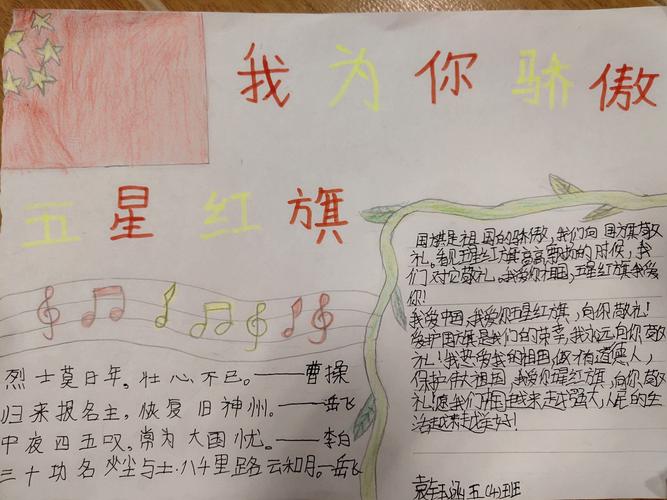 我为你骄傲
五星红旗
烈士莫日年,壮心不已。——曹操
归来报名主,恢复旧神州。——岳飞
中夜四五叹,常为大国忧。——李白
三十功名尘与土·八千里路云和月。—岳飞
国旗是祖国的骄傲,我们向国旗敬
礼。看见五星红旗高高飘扬的时候,我
们对它敬礼。我爱你祖国,五星红旗我爱
你!
我爱中国,我爱你五星红旗,向你敬礼!
爱护国旗是我们的荣幸,我永远向你敬
礼!我热爱我的祖国,做个有道德人,
保护伟大祖国,我爱你五星红旗,向你敬
礼!愿我们祖国越来越强大,人民的生
活越来越美好!
袁钰涵五(4)班